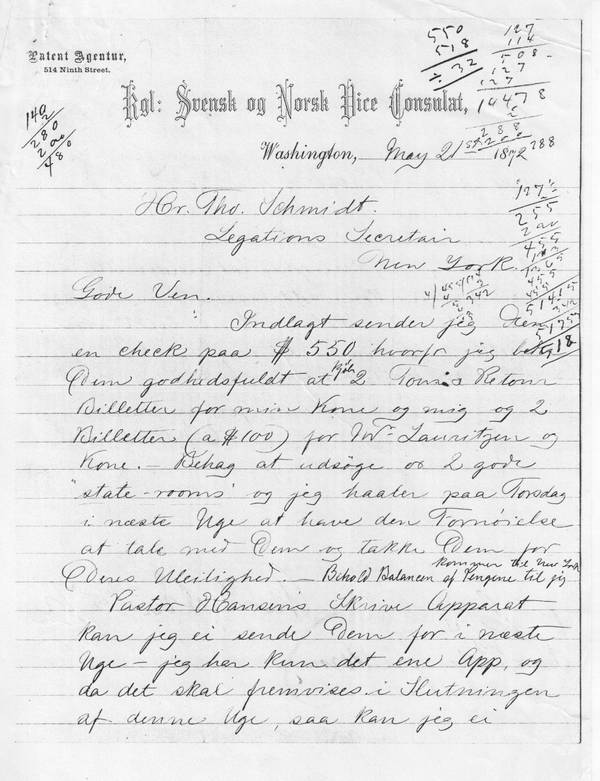 Patent Agentur,
514 Ninth Street.
Kgl: Svensk og Norsk Vice Consulat,
Washington, May 21st 1872
550
518
32
127
114
508
127
127
14478
2
288
200
288
140
280
200
480
"127"
255
200
455
Hr. Tho. Schmidt.
Legations Secretair
New York.
Gode Ven.
Indlagt sender jeg Dem
en check paa $550 hvorfor jeg
Dem godhedsfuldt at kjøbe 2 Tour & Retour
Billetter for min Kone og mig og 2
Billetter (a $100) for Mr Lauritzen og
Kone. — Behag at udsøge os 2 gode
"state-rooms" og jeg haaber paa Torsdag
i næste Uge at have den Fornøielse
at tale med Dem og takke Dem for
Deres Uleilighed. — Behold Balancen af Pengene til jeg
kommer til New York
Pastor Hansens Skrive Apparat
kan jeg ei sende Dem før i næste
Uge — jeg har kun det ene App. og
da det skal fremvises i Slutningen
af denne Uge, saa kan jeg ei